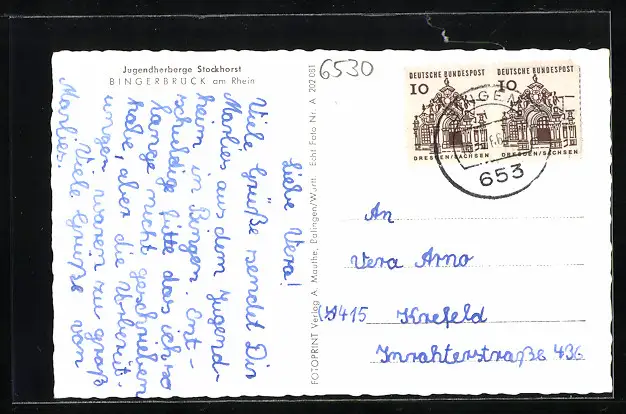 Jugendherberge Stockhorst
BINGERBRÜCK am Rhein
Liebe Vera!
Viele Grüße sendet Dir
Marlies aus dem Jugend-
heim in Bingen. Ent-
schuldige bitte das ich so
lange nicht geschrieben
habe, aber die Vorbereit-
ungen waren zu groß
Viele Grüße von
Marlies.
FOTOPRINT Verlag A. Mauthe, Balingen/Württ. Echt Foto Nr. A 202081
6530
DEUTSCHE BUNDESPOST
10
DRESDEN/SACHSEN
DEUTSCHE BUNDESPOST
10
DRESDEN/SACHSEN
BINGEN
653
An
Vera Arno
415 Krefeld
Inrahterstraße 436